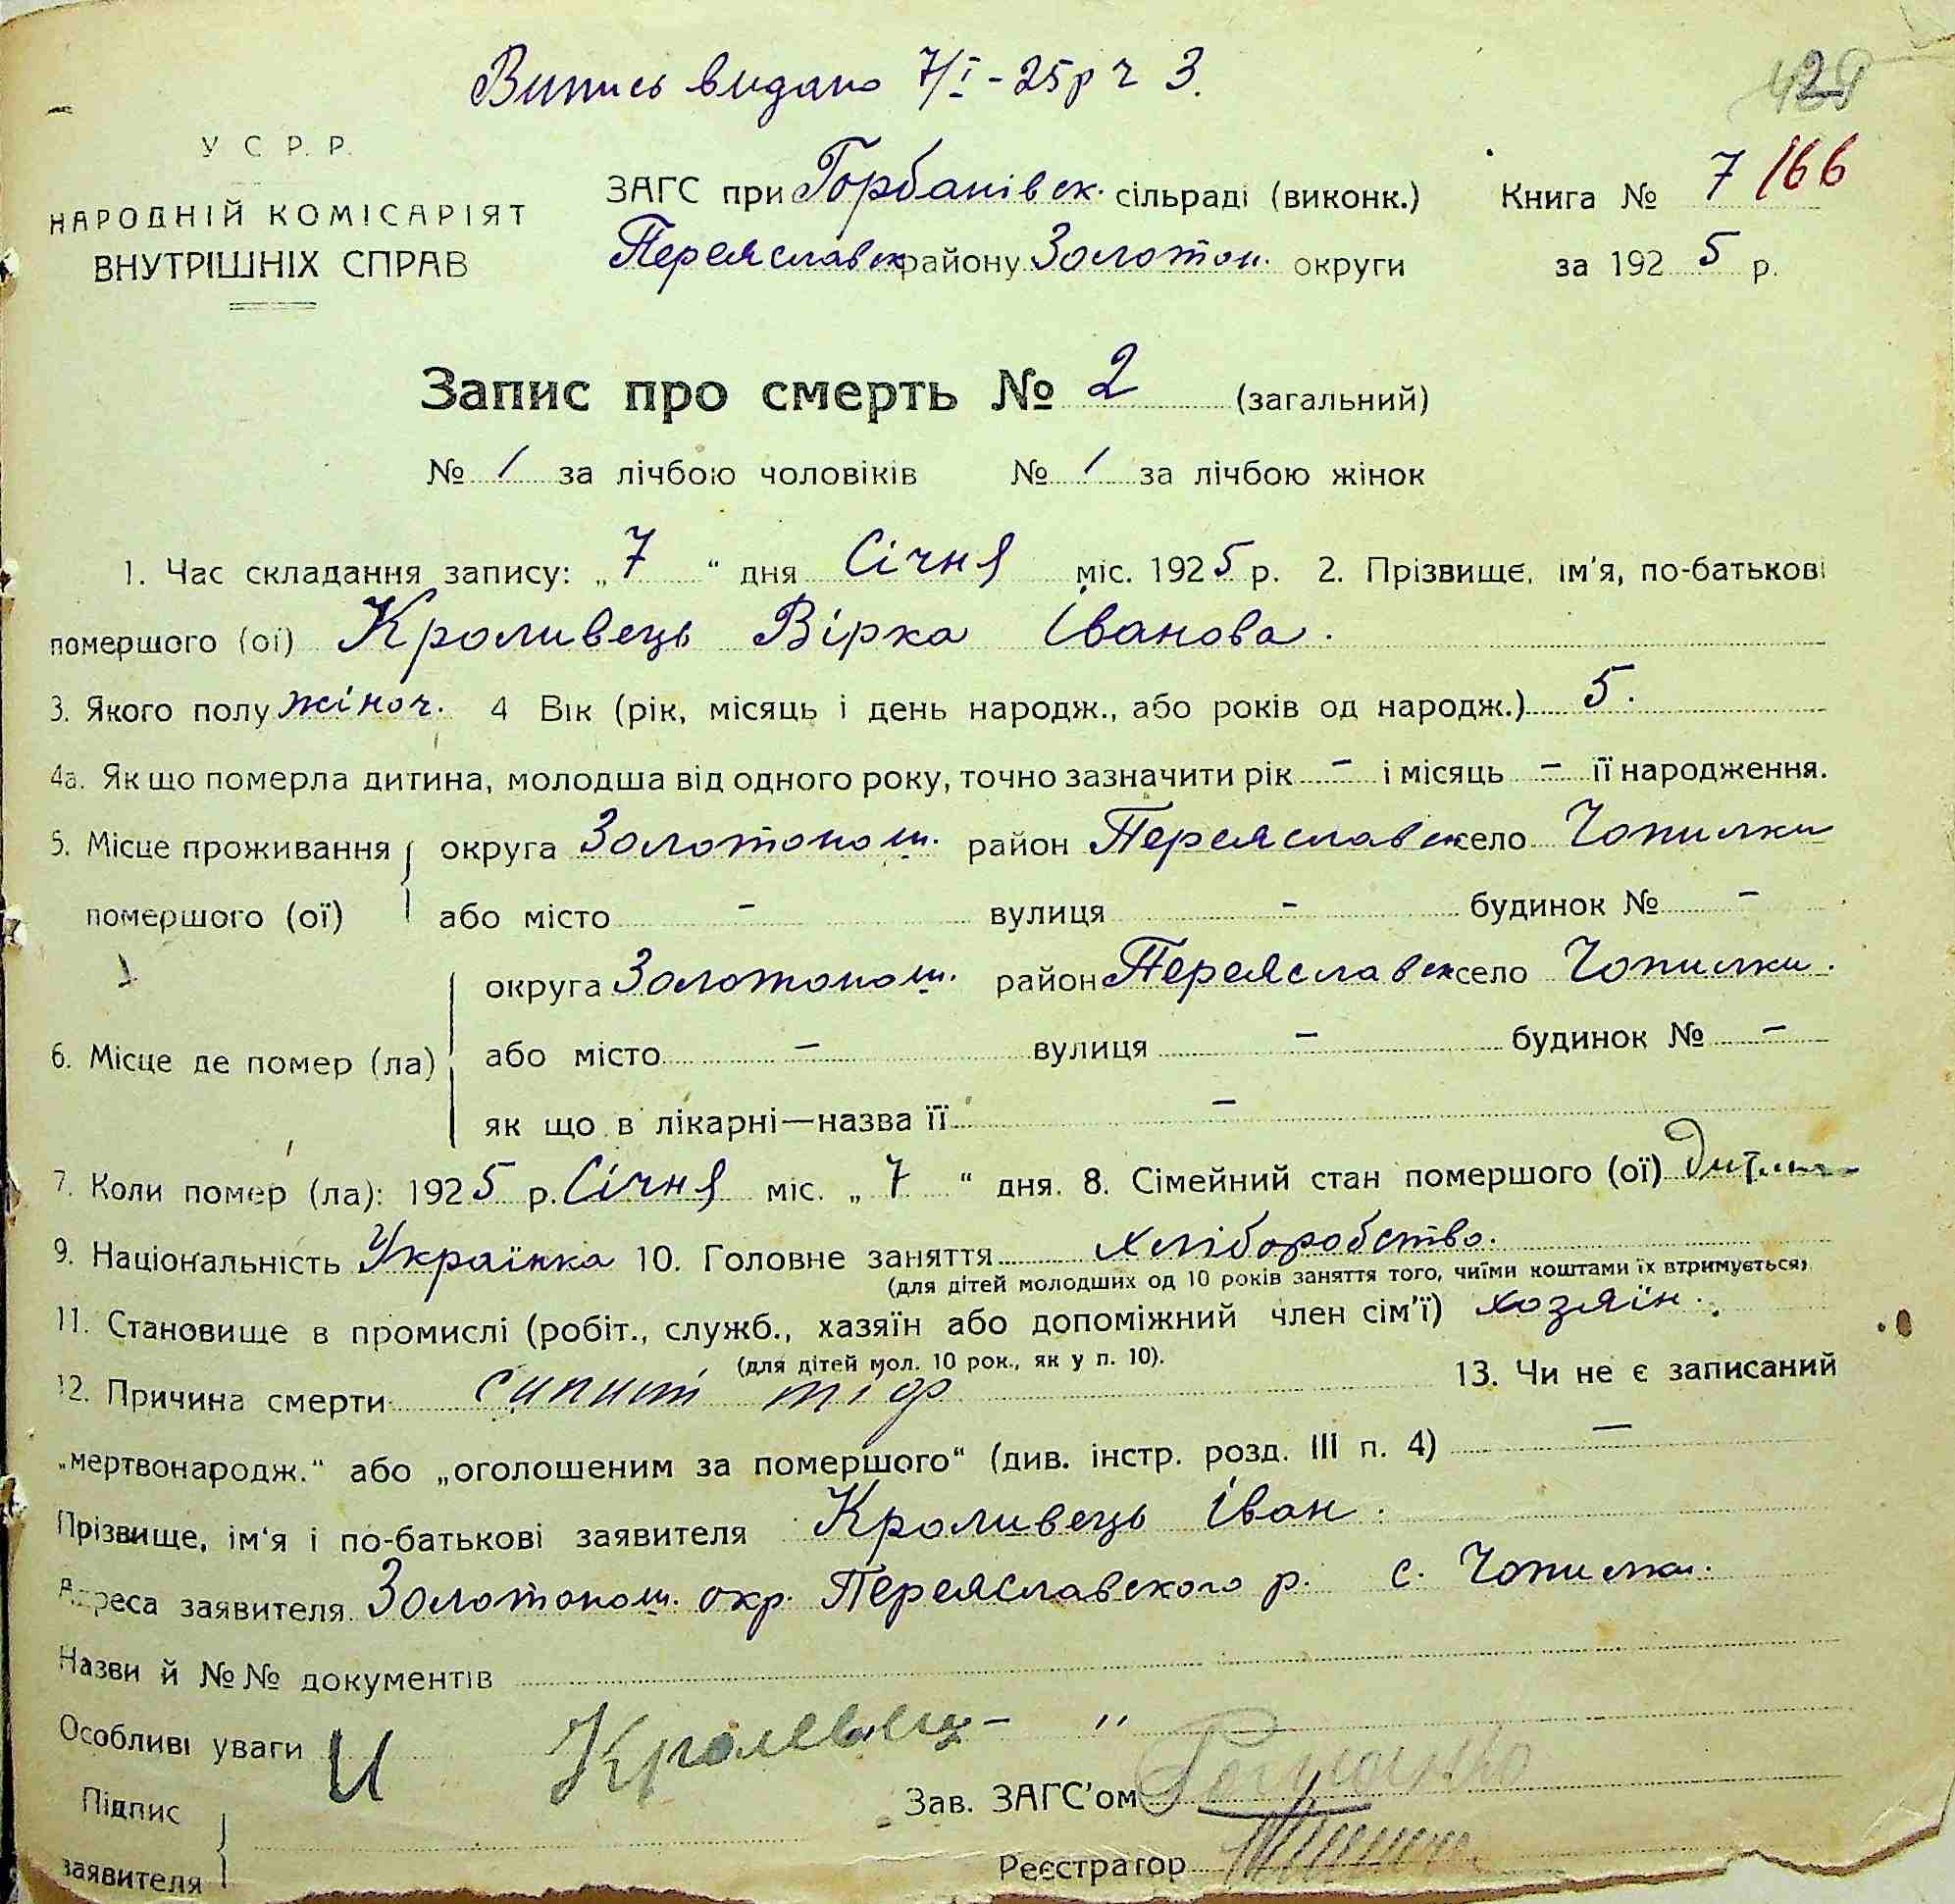 Випись видано 7/I-25р ч 3.
У С Р. Р.
НАРОДНІЙ КОМІСАРІЯТ
ВНУТРІШНІХ СПРАВ
ЗАГС при Горбанівск. сільраді (виконк.)
Переяславск району Золотон. округи
Книга № 7/66
за 1925 р.
Запис про смерть № 2 (загальний)
№ 1 за лічбою чоловіків № 1 за лічбою жінок
1. Час складання запису: „7“ дня Січня міс. 1925 р. 2. Прізвище, ім'я, по-батькові
помершого (ої) Кроливець Вірка Іванова.
3. Якого полу жіноч. 4 Вік (рік, місяць і день народж., або років од народж.) 5.
4а. Як що померла дитина, молодша від одного року, точно зазначити рік – і місяць – її народження.
5. Місце проживання округа Золотонош. район Переяславск село Чопилки
помершого (ої) або місто – вулиця – будинок № –
округа Золотонош. район Переяславск село Чопилки.
6. Місце де помер (ла) або місто – вулиця – будинок № –
як що в лікарні—назва її –
7. Коли помер (ла): 1925 р. Січня міс. „7“ дня. 8. Сімейний стан помершого (ої) дитина
9. Національність Українка 10. Головне заняття хліборобство.
(для дітей молодших од 10 років заняття того, чиїми коштами їх втримується)
11. Становище в промислі (робіт., служб., хазяїн або допоміжний член сім'ї) хозяїн.
(для дітей мол. 10 рок., як у п. 10).
12. Причина смерти сипний тіф 13. Чи не є записаний
„мертвонародж.“ або „оголошеним за помершого“ (див. інстр. розд. III п. 4) –
Прізвище, ім'я і по-батькові заявителя Кроливець Іван.
Адреса заявителя Золотонош. окр. Переяславского р. с. Чопилки.
Назви й №№ документів
Особливі уваги
И Кролевець
Підпис
заявителя
Зав. ЗАГС'ом
Реєстратор